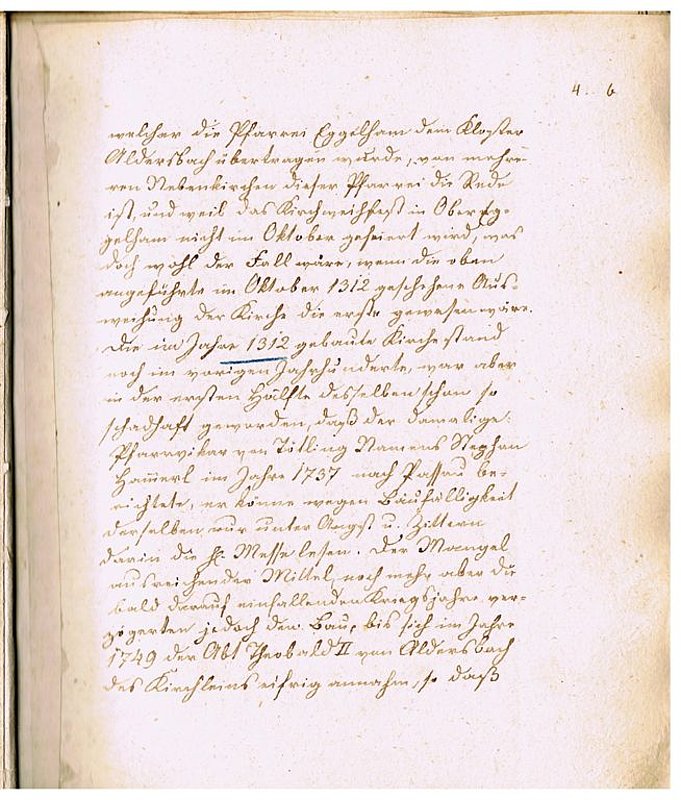 4. 6
welcher die Pfarrei Eggelham dem Kloster
Aldersbach übertragen wurde, von mehre-
ren Nebenkirchen dieser Pfarrei die Rede
ist, und weil das Kirchweihfest in Ober Eg-
gelham nicht im Oktober gefeiert wird, was
doch wohl der Fall wäre, wenn die oben
angeführte im Oktober 1312 geschehene Aus-
weihung der Kirche die erste gewesen wäre.
Die im Jahre 1312 gebaute Kirche stand
noch im vorigen Jahrhunderte, war aber
in der ersten Hälfte desselben schon so
schadhaft geworden, daß der damalige
Pfarrvikar von Tötling Namens Stephan
Hamerl im Jahre 1737 nach Passau be-
richtete, er könne wegen Baufälligkeit
derselben nur unter Angst u. Zittern
darin die hl. Messe lesen. Der Mangel
ausreichender Mittel, noch mehr aber die
bald darauf einfallenden Kriegsjahre ver-
zögerten jedoch den Bau, bis sich im Jahre
1749 der Abt Theobald II von Aldersbach
des Kirchleins eifrig annahm, so daß